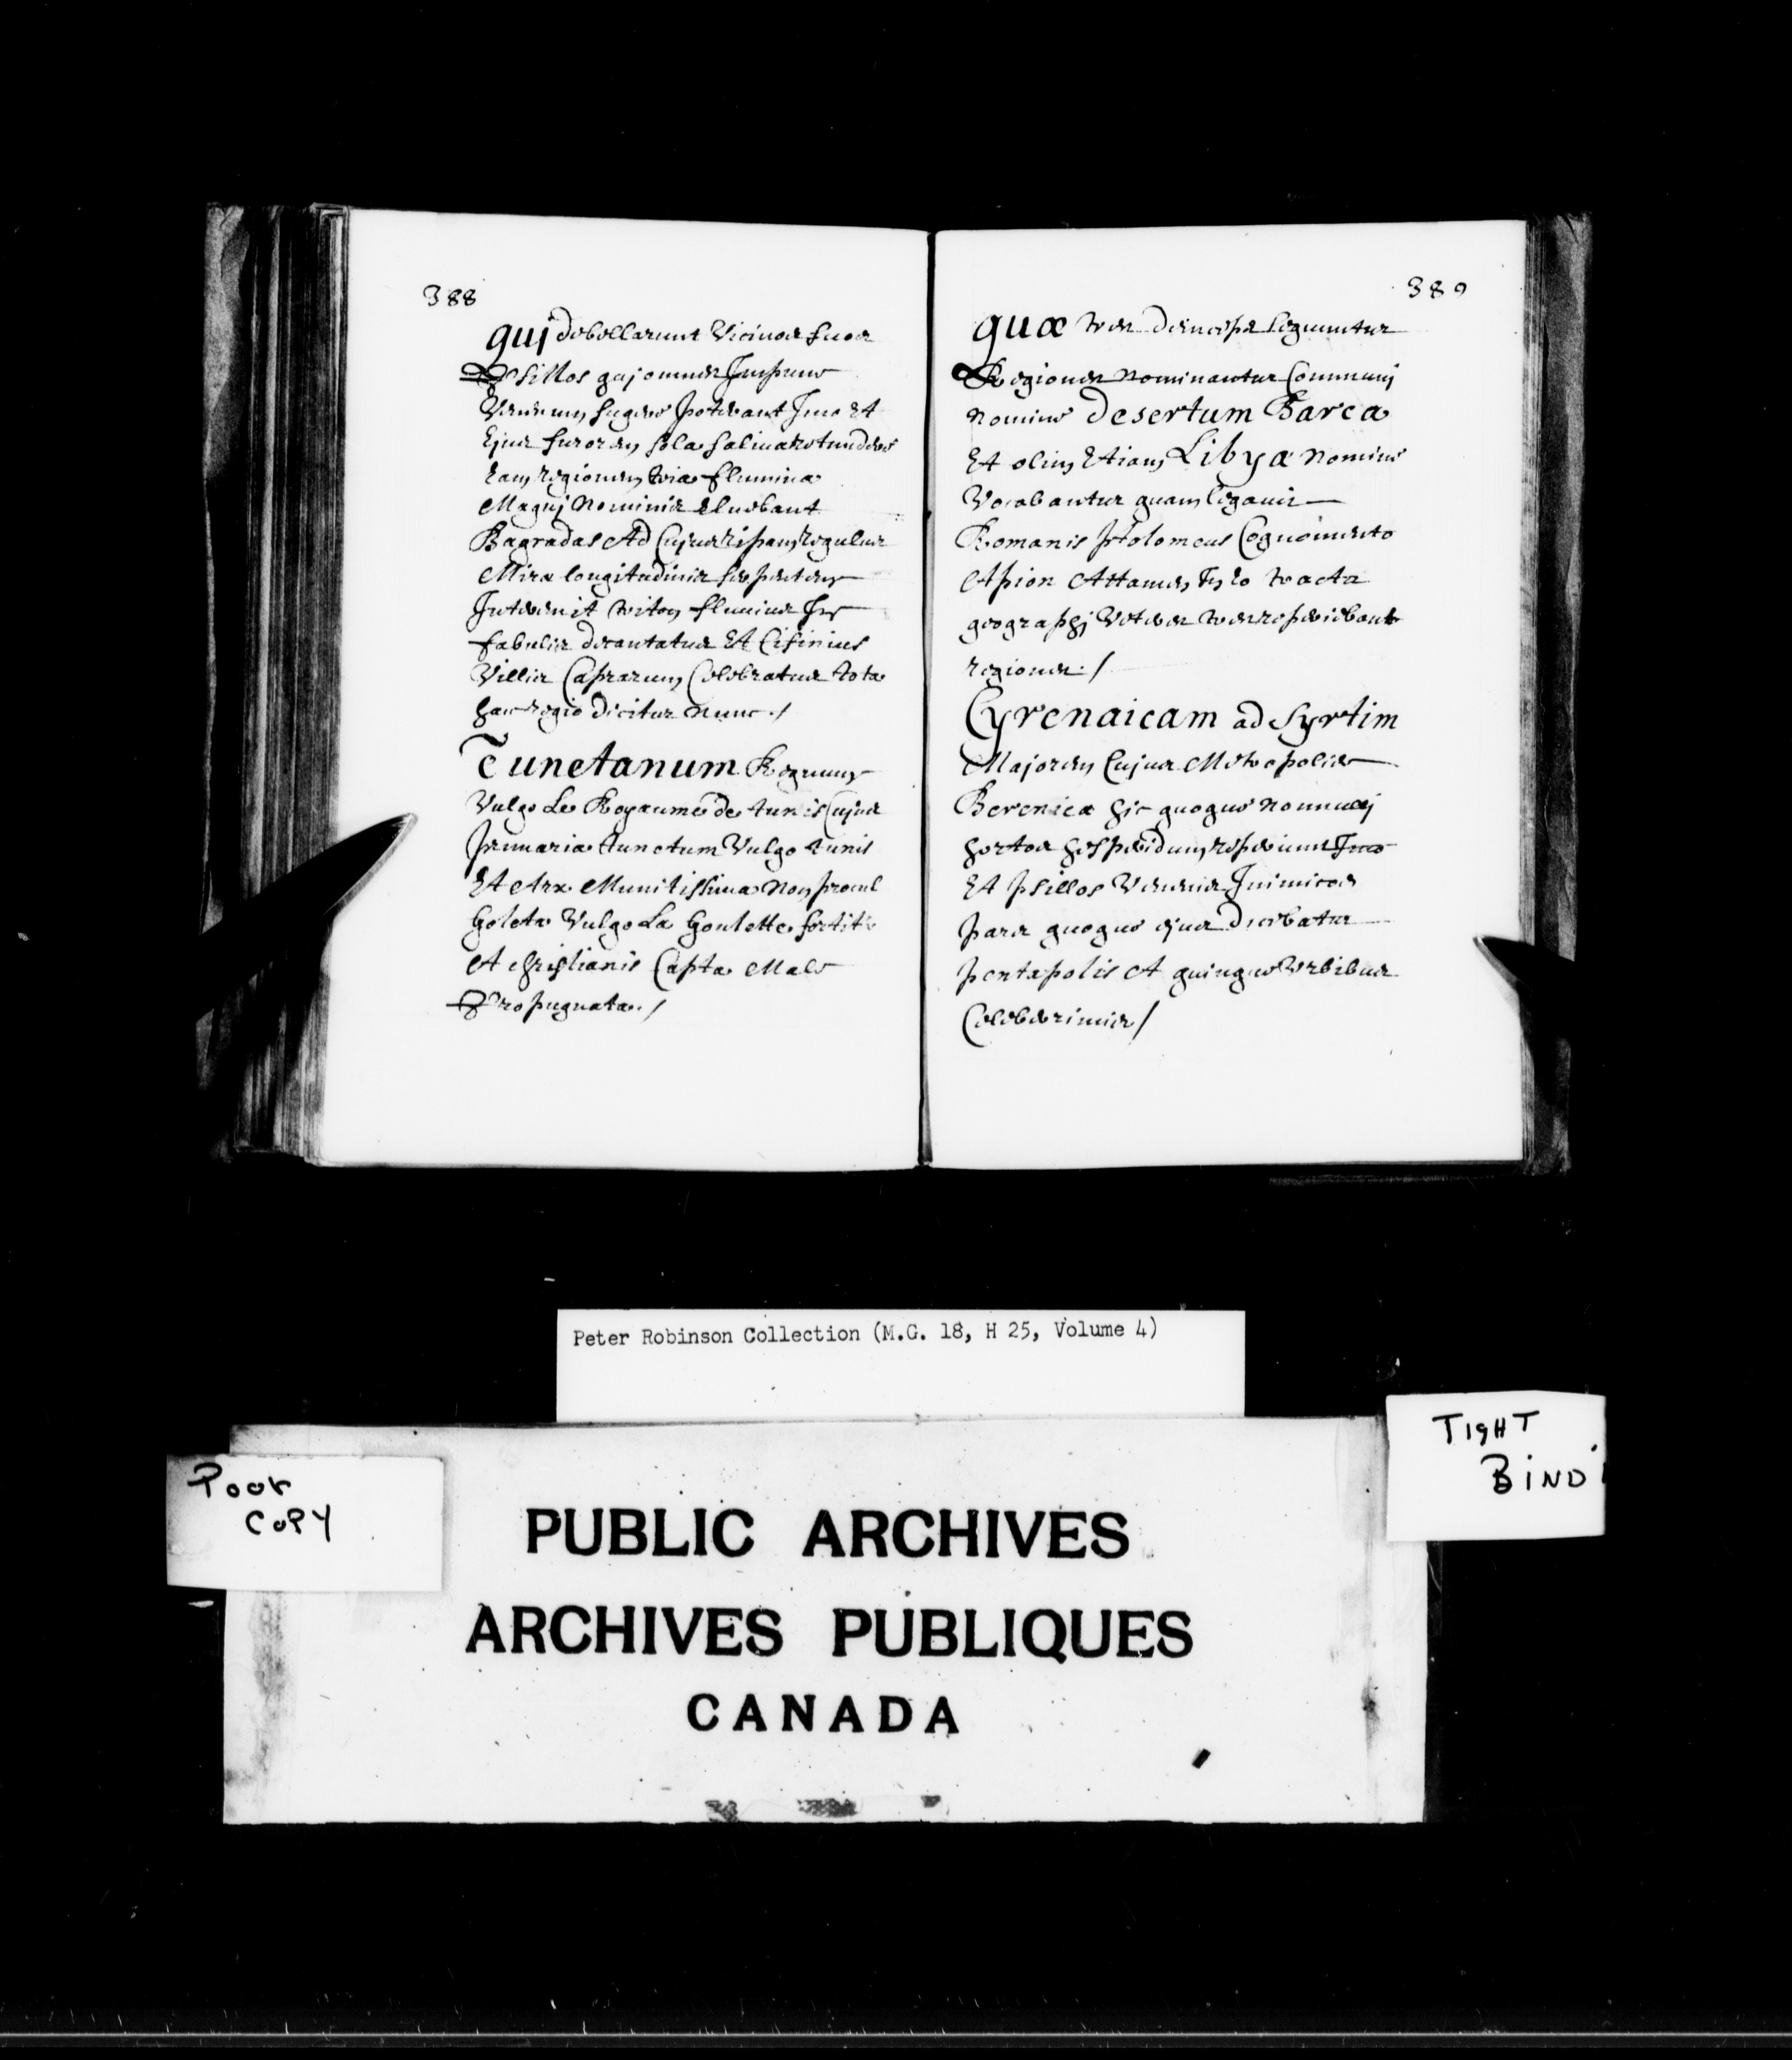 388
quj debellarunt Vicinos suos
Psillos quj omnes Impune
Venenum sugere poterant Imo Et
Ejus furorem sola saliua retundere
Eam regionem tria flumina
Magnj Nominis eluebant
Bagradas Ad Cujus ripam regulus
Miræ longitudinis serpentem
Interemit triton flumius In
fabulis decantatus Et Cisinius
Villis Caprarum Celebratus tota
hæc regio dicitur nunc ./
Tunetanum Regnum
Vulgo Le Royaume de tunis Cujus
primaria tunetum Vulgo tunis
Et Arx Munitissima Non procul
Goleta Vulgo La Goulette
A christianis Capta Male
Propugnata ./
389
quæ tres deinceps sequuntur
Regiones Nominantur Communj
nomine desertum Barca
Et olim Etiam Libyæ Nomine
Vocabantur quam legauit
Romanis ptolomeus Cognomento
Apion Attamen In Eo tractu
geographj Veteres tres reperiebant
regiones ./
Cyrenaicam ad Syrtim
Majorem Cujus Metropolis
Berenicæ hic quoque nonnullj
hortos hesperidum reperiunt Imo
Et psillos Venenis Inimicos
pars quoque ejus dicebatur
pentapolis A quinque Vrbibus
Celeberrimis /
Peter Robinson Collection (M.G. 18, H 25, Volume 4)
Poor
COPY
TIGHT
BIND
PUBLIC ARCHIVES
ARCHIVES PUBLIQUES
CANADA